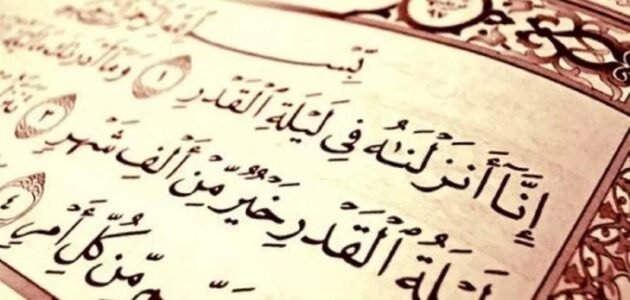 بِسْمِ ٱللَّهِ
إِنَّآ أَنزَلْنَٰهُ فِى لَيْلَةِ ٱلْقَدْرِ ١ وَمَآ أَدْرَىٰكَ مَا
لَيْلَةُ ٱلْقَدْرِ خَيْرٌ مِّنْ أَلْفِ شَهْرٍ ٣
مِّن كُلِّ أَمْرٍ ٤